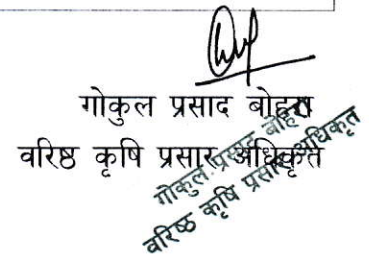 गोकुल प्रसाद बोहरा
वरिष्ठ कृषि प्रसार अधिकृत
गोकुल प्रसाद बोहरा
वरिष्ठ कृषि प्रसार अधिकृत